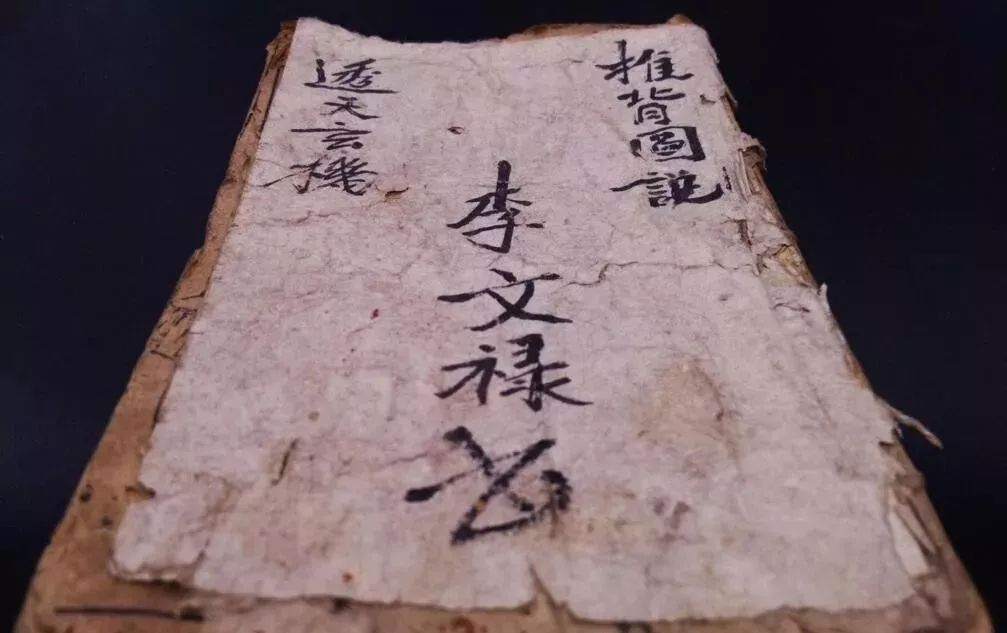 推背圖説
李文禄
透天玄機